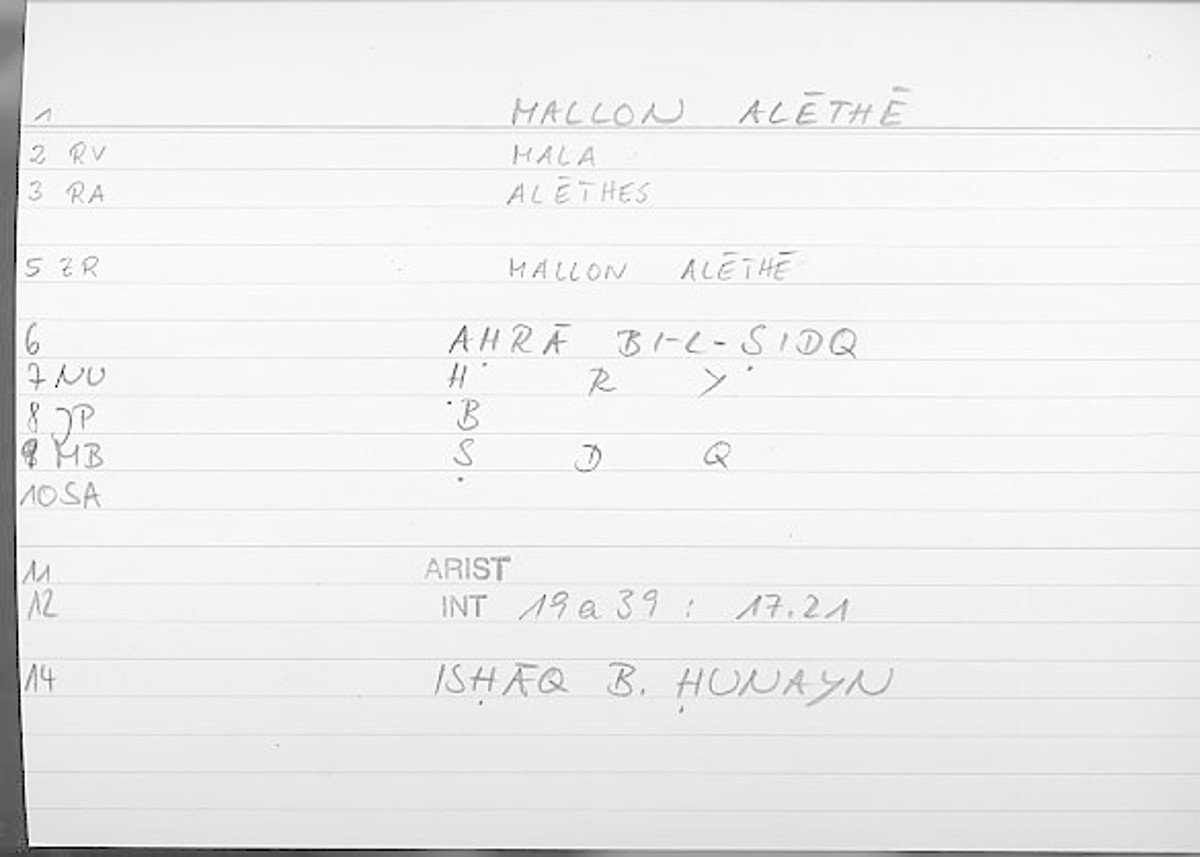 1 MALLON ALĒTHĒ
2 RV MALA
3 RA ALĒTHES
5 ZR MALLON ALĒTHĒ
6 AḤRĀ BI-L-ṢIDQ
7 NU Ḥ R Y
8 JP B
9 MB Ṣ D Q
10 SA
11 ARIST
12 INT 19a39 : 17.21
14 ISḤĀQ B. ḤUNAYN